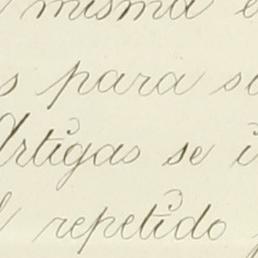 misma
para
Artigas se
repetido